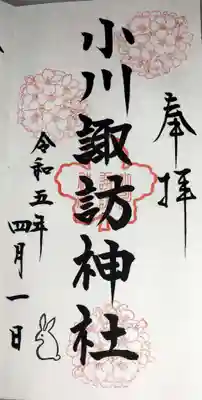 奉拝
小川諏訪神社
令和五年
四月一日